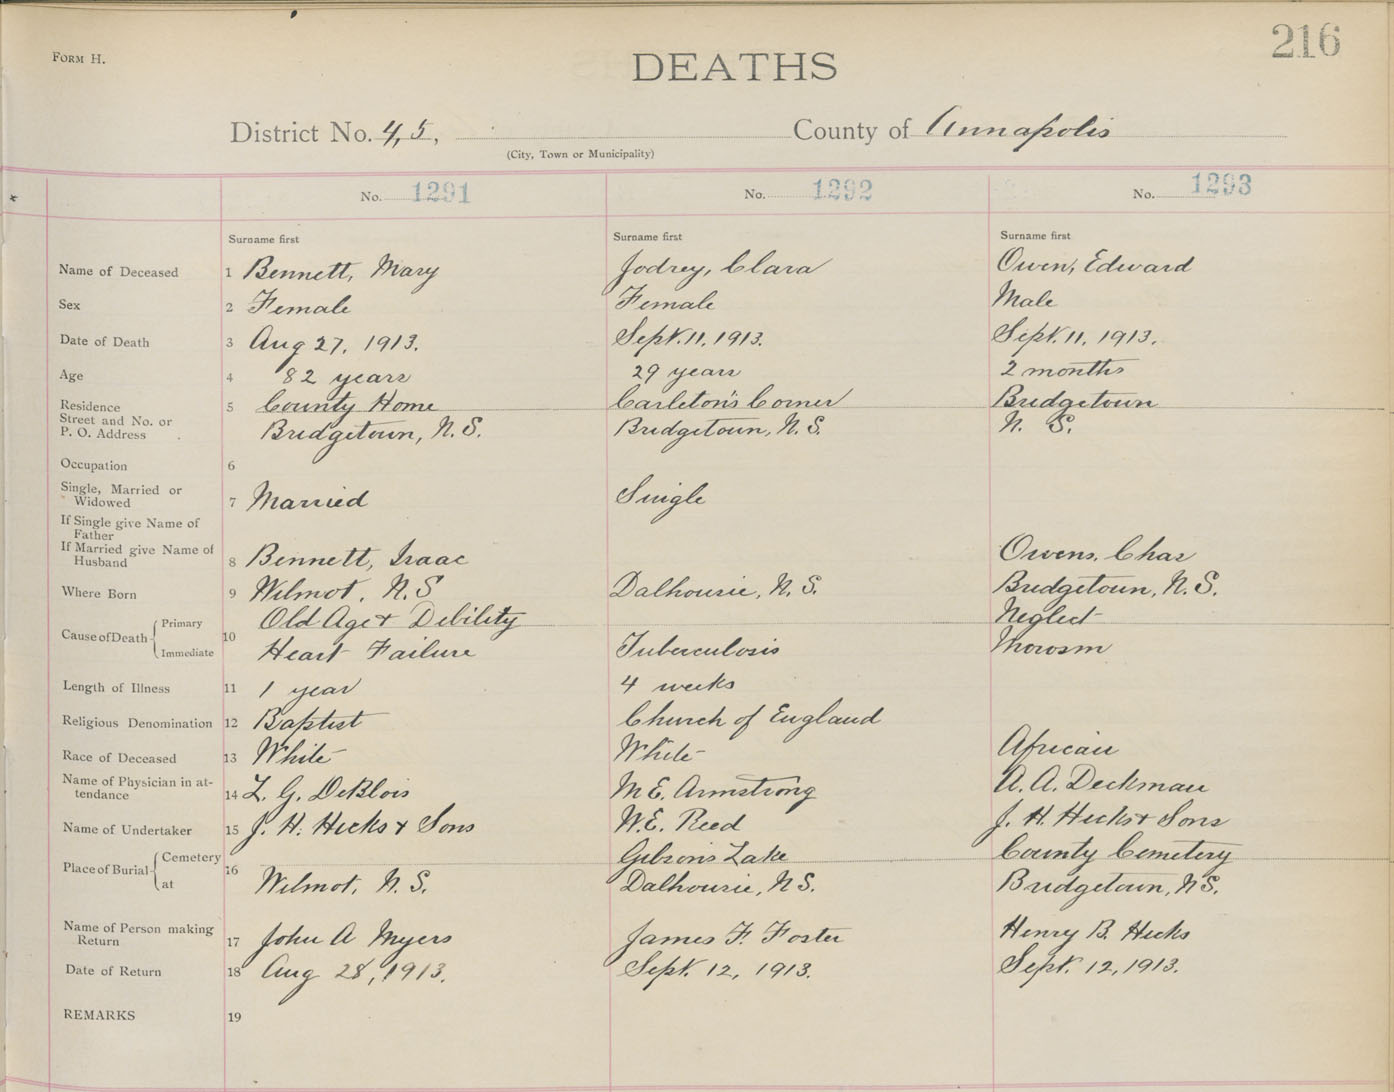 216
FORM H.
DEATHS
District No. 4,5, County of Annapolis
(City, Town or Municipality)
No. 1291 No. 1292 No. 1293
Surname first Surname first Surname first
Name of Deceased 1 Bennett, Mary Jodrey, Clara Owen, Edward
Sex 2 Female Female Male
Date of Death 3 Aug 27, 1913. Sept. 11, 1913. Sept. 11, 1913.
Age 4 82 years 29 years 2 months
Residence 5 County Home Carleton's Corner Bridgetown
Street and No. or
P. O. Address Bridgetown, N.S. Bridgetown, N.S. N. S.
Occupation 6
Single, Married or
Widowed 7 Married Single
If Single give Name of
Father
If Married give Name of
Husband 8 Bennett, Isaac Owens, Chas
Where Born 9 Wilmot, N.S Dalhousie, N.S. Bridgetown, N.S.
Cause of Death Primary 10 Old Age + Debility Neglect
Immediate Heart Failure Tuberculosis
Length of Illness 11 1 year 4 weeks
Religious Denomination 12 Baptist Church of England
Race of Deceased 13 White White African
Name of Physician in at-
tendance 14 L. G. DeBlois M E. Armstrong A. A. Deckman
Name of Undertaker 15 J. H. Hicks + Sons W.E. Reed J. H. Hicks + Sons
Place of Burial Cemetery 16 Gibson's Lake County Cemetery
at Wilmot, N.S. Dalhousie, N S. Bridgetown, N S.
Name of Person making
Return 17 John A Myers James F. Foster Henry B. Hicks
Date of Return 18 Aug 28, 1913. Sept. 12, 1913. Sept. 12, 1913.
REMARKS 19